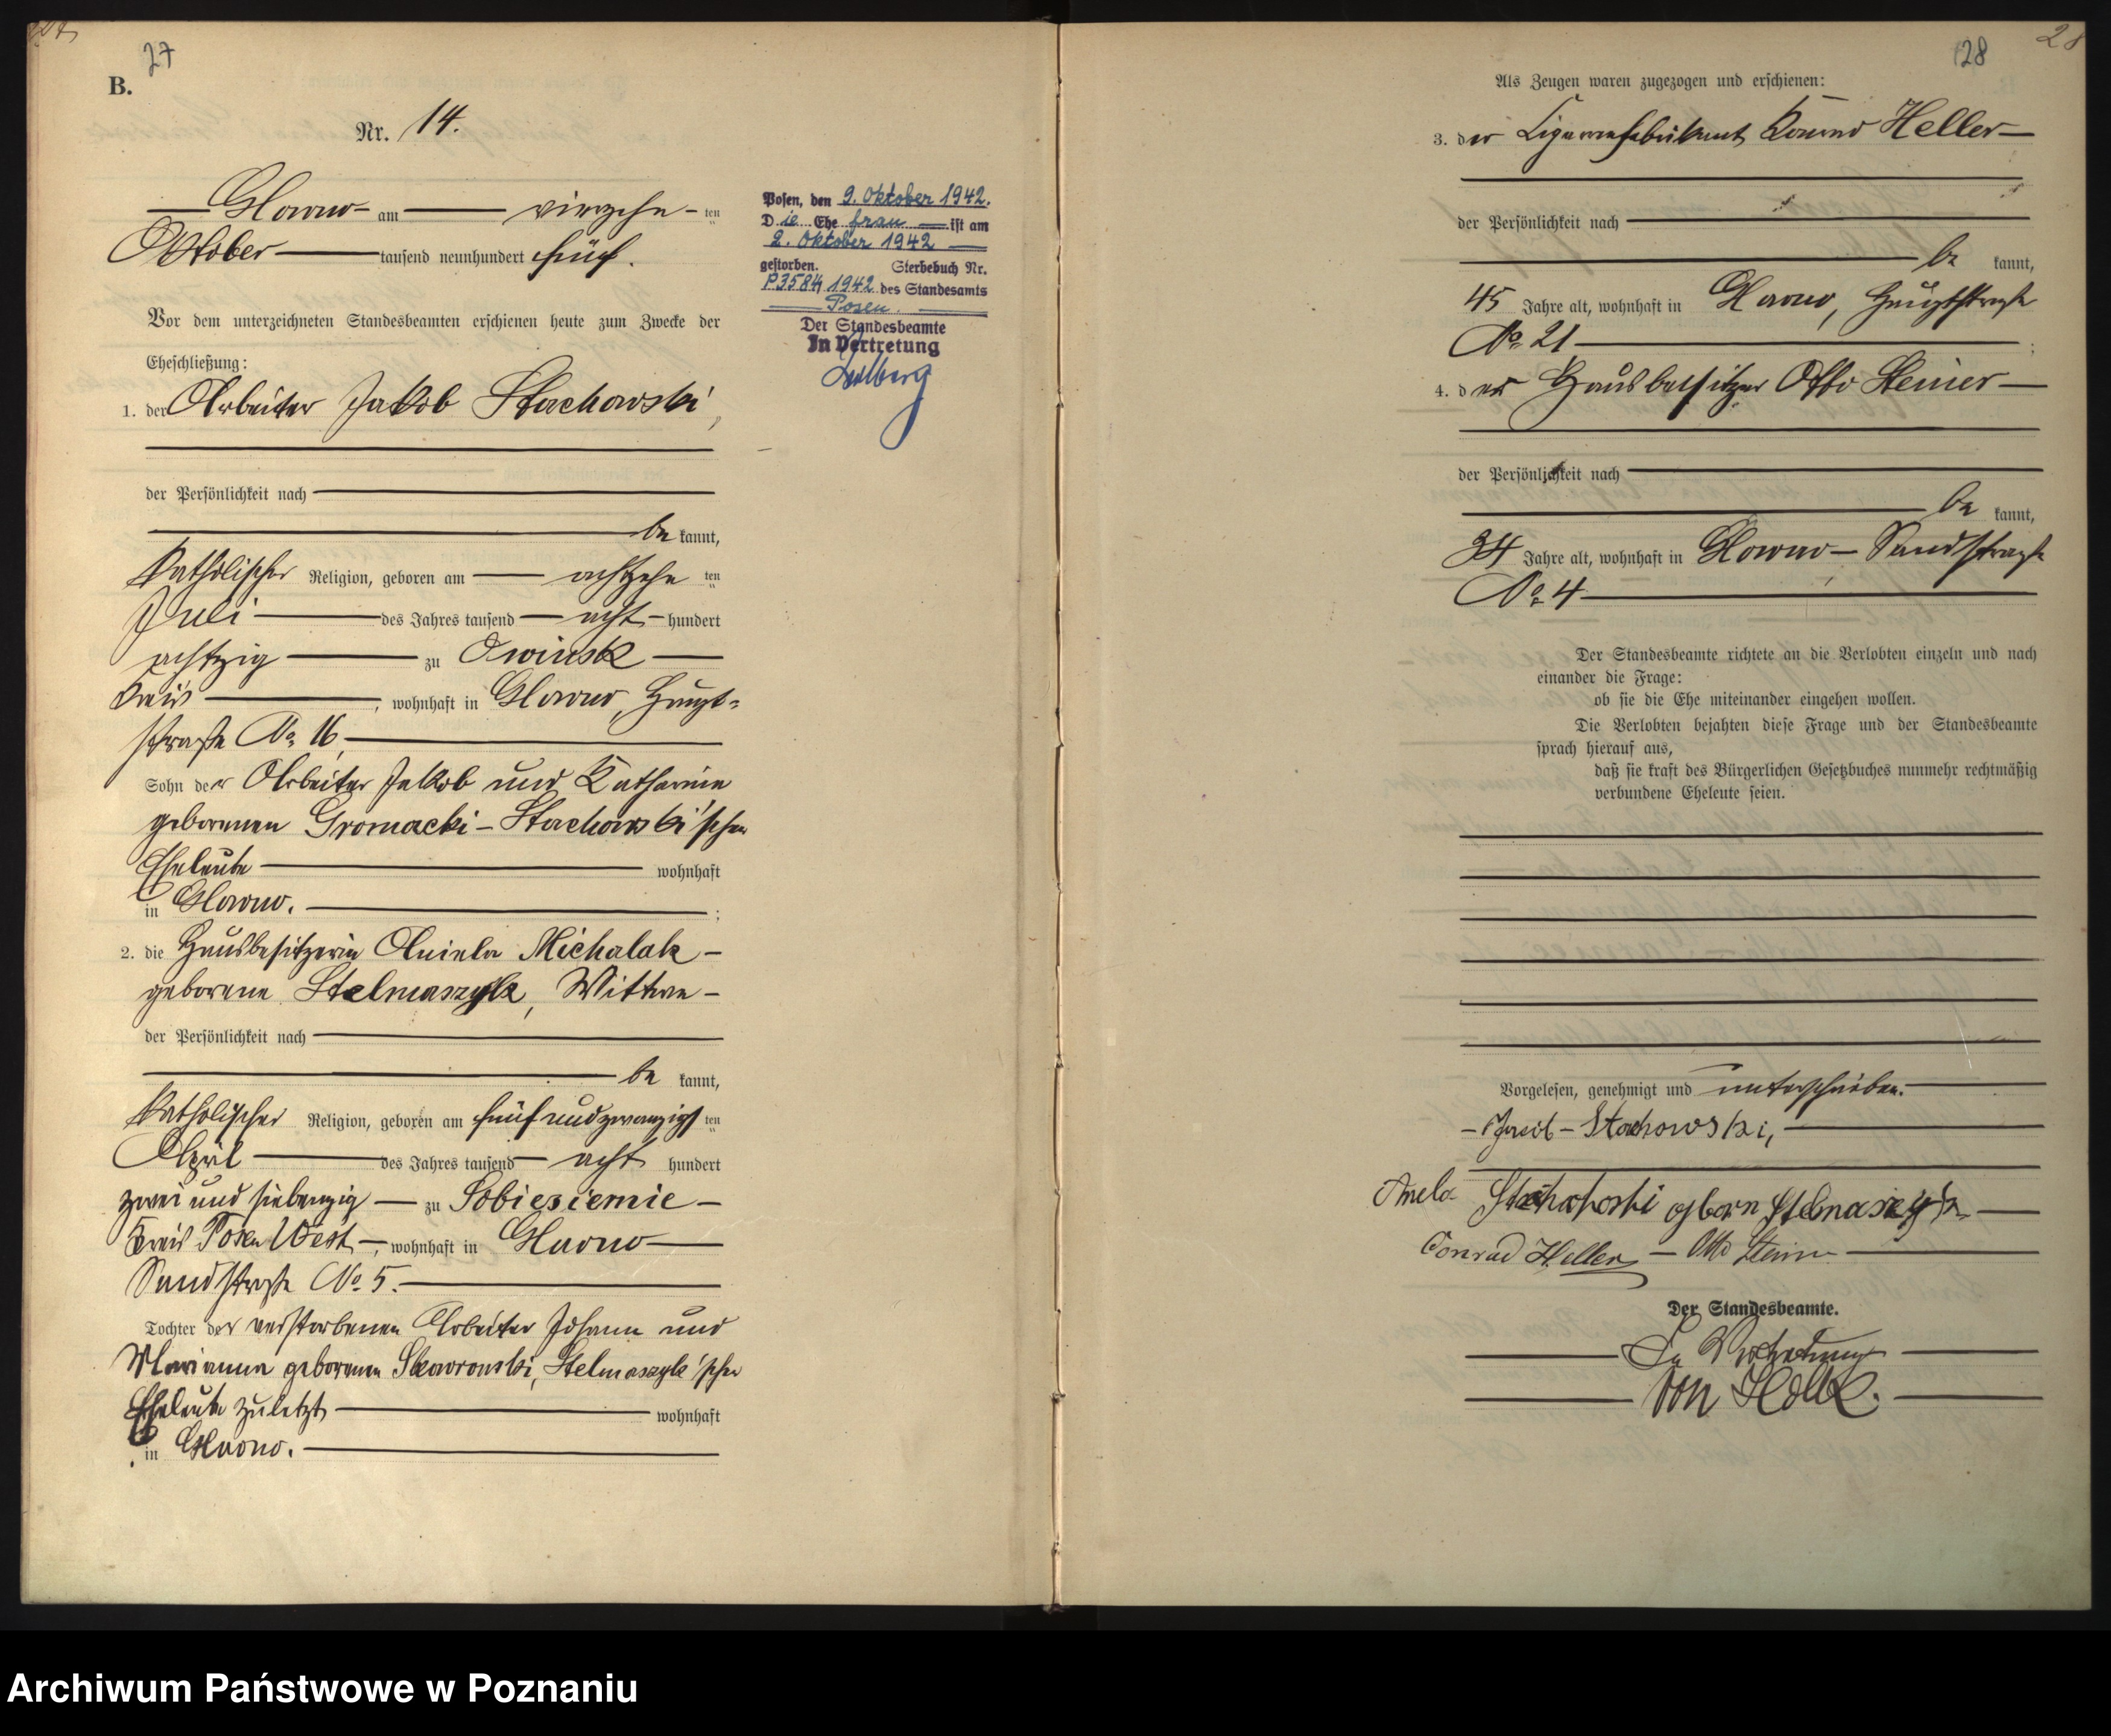 27
B.
Nr. 14.
Glowno am vierzehn ten
Oktober tausend neunhundert fünf.
Vor dem unterzeichneten Standesbeamten erschienen heute zum Zwecke der
Eheschließung:
1. der Arbeiter Jakob Stachowski,
der Persönlichkeit nach
be kannt,
katholischer Religion, geboren am achtzehn ten
Juli des Jahres tausend acht hundert
achtzig zu Owinsk
Kreis , wohnhaft in Glowno, Haupt=
straße No. 16,
Sohn der Arbeiter Jakob und Katharina
geborenen Gromacki-Stachowski'schen
Eheleute wohnhaft
in Glowno. ;
2. die Hausbesitzerin Aniela Michalak
geborene Stelmaszyk, Wittwe
der Persönlichkeit nach
be kannt,
katholischer Religion, geboren am fünfundzwanzigs ten
April des Jahres tausend acht hundert
zwei und siebenzig zu Sobiesiernie
Kreis Posen West, wohnhaft in Glowno
Sandstraße No. 5.
Tochter der verstorbenen Arbeiter Johann und
Marianna geborenen Skowronski, Stelmaszyk'schen
Eheleute zuletzt wohnhaft
in Glowno.
Posen, den 9. Oktober 1942.
Die Ehe frau ist am
2. Oktober 1942
gestorben. Sterbebuch Nr.
P3584 1942 des Standesamts
Posen.
Der Standesbeamte
In Vertretung
28
28
Als Zeugen waren zugezogen und erschienen:
3. der Cigarrenfabrikant Konrad Heller
der Persönlichkeit nach
be kannt,
45 Jahre alt, wohnhaft in Glowno, Hauptstraße
No. 21 ;
4. der Hausbesitzer Otto Steiner
der Persönlichkeit nach
be kannt,
34 Jahre alt, wohnhaft in Glowno, Sandstraße
No. 4
Der Standesbeamte richtete an die Verlobten einzeln und nach
einander die Frage:
ob sie die Ehe miteinander eingehen wollen.
Die Verlobten bejahten diese Frage und der Standesbeamte
sprach hierauf aus,
daß sie kraft des Bürgerlichen Gesetzbuches nunmehr rechtmäßig
verbundene Eheleute seien.
Vorgelesen, genehmigt und unterschrieben.
Stachowski,
Anela Stachowski geborn Stelmaszyk
Conrad Heller Otto Steiner
Der Standesbeamte.
In Vertretung
von
Archiwum Państwowe w Poznaniu